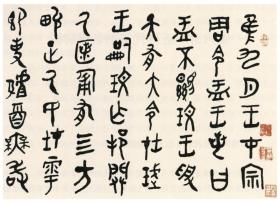 隹九月王才宗
周令盂王若曰
盂不顯玟王受
天有大令在珷
王嗣玟乍邦闢
氒匿匍有四方
畯正氒民在雩
御事酉無敢